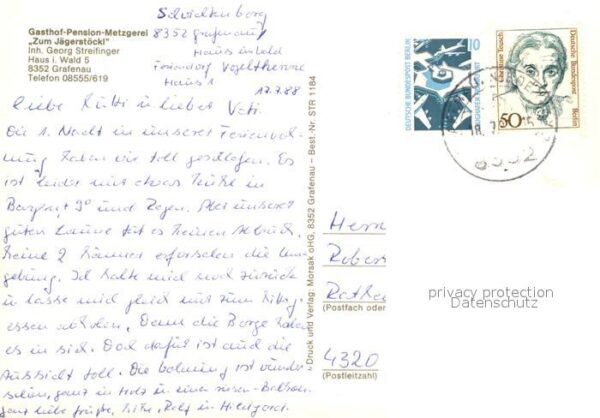 Gasthof-Pension-Metzgerei
„Zum Jägerstöckl"
Inh. Georg Streifinger
Haus i. Wald 5
8352 Grafenau
Telefon 08555/619
8352 Grafenau
Haus im Wald
Feriendorf Vogeltenne
Haus 1
17.7.88
Liebe Mutti u. lieber Vati.
Die 1. Nacht in unserer Ferienwoh-
nung haben wir toll geschlafen. Es
ist leider nur etwas kühl in
Bayern, + 9° und Regen. Aber unserer
guten Laune tut es keinen Abbruch.
Meine 2 Männer erforschen die Um-
gebung. Ich halte mich noch zurück
u. lasse mich gleich nur zum
essen abholen. Denn die Berge haben
es in sich. Doch dafür ist auch die
Aussicht toll. Die Wohnung ist wunder
schön, ganz in Holz u. einen riesen-Balkon.
Ganz liebe Grüße, Rolf u. Hildegard.
Druck und Verlag: Morsak oHG, 8352 Grafenau – Best.-Nr. STR 1184
DEUTSCHE BUNDESPOST BERLIN
10
FLUGHAFEN FRANKFURT
Christine Teusch
Deutsche Bundespost
Berlin
50
8352
Herrn
Robert
(Postfach oder
4320
(Postleitzahl)
privacy protection
Datenschutz